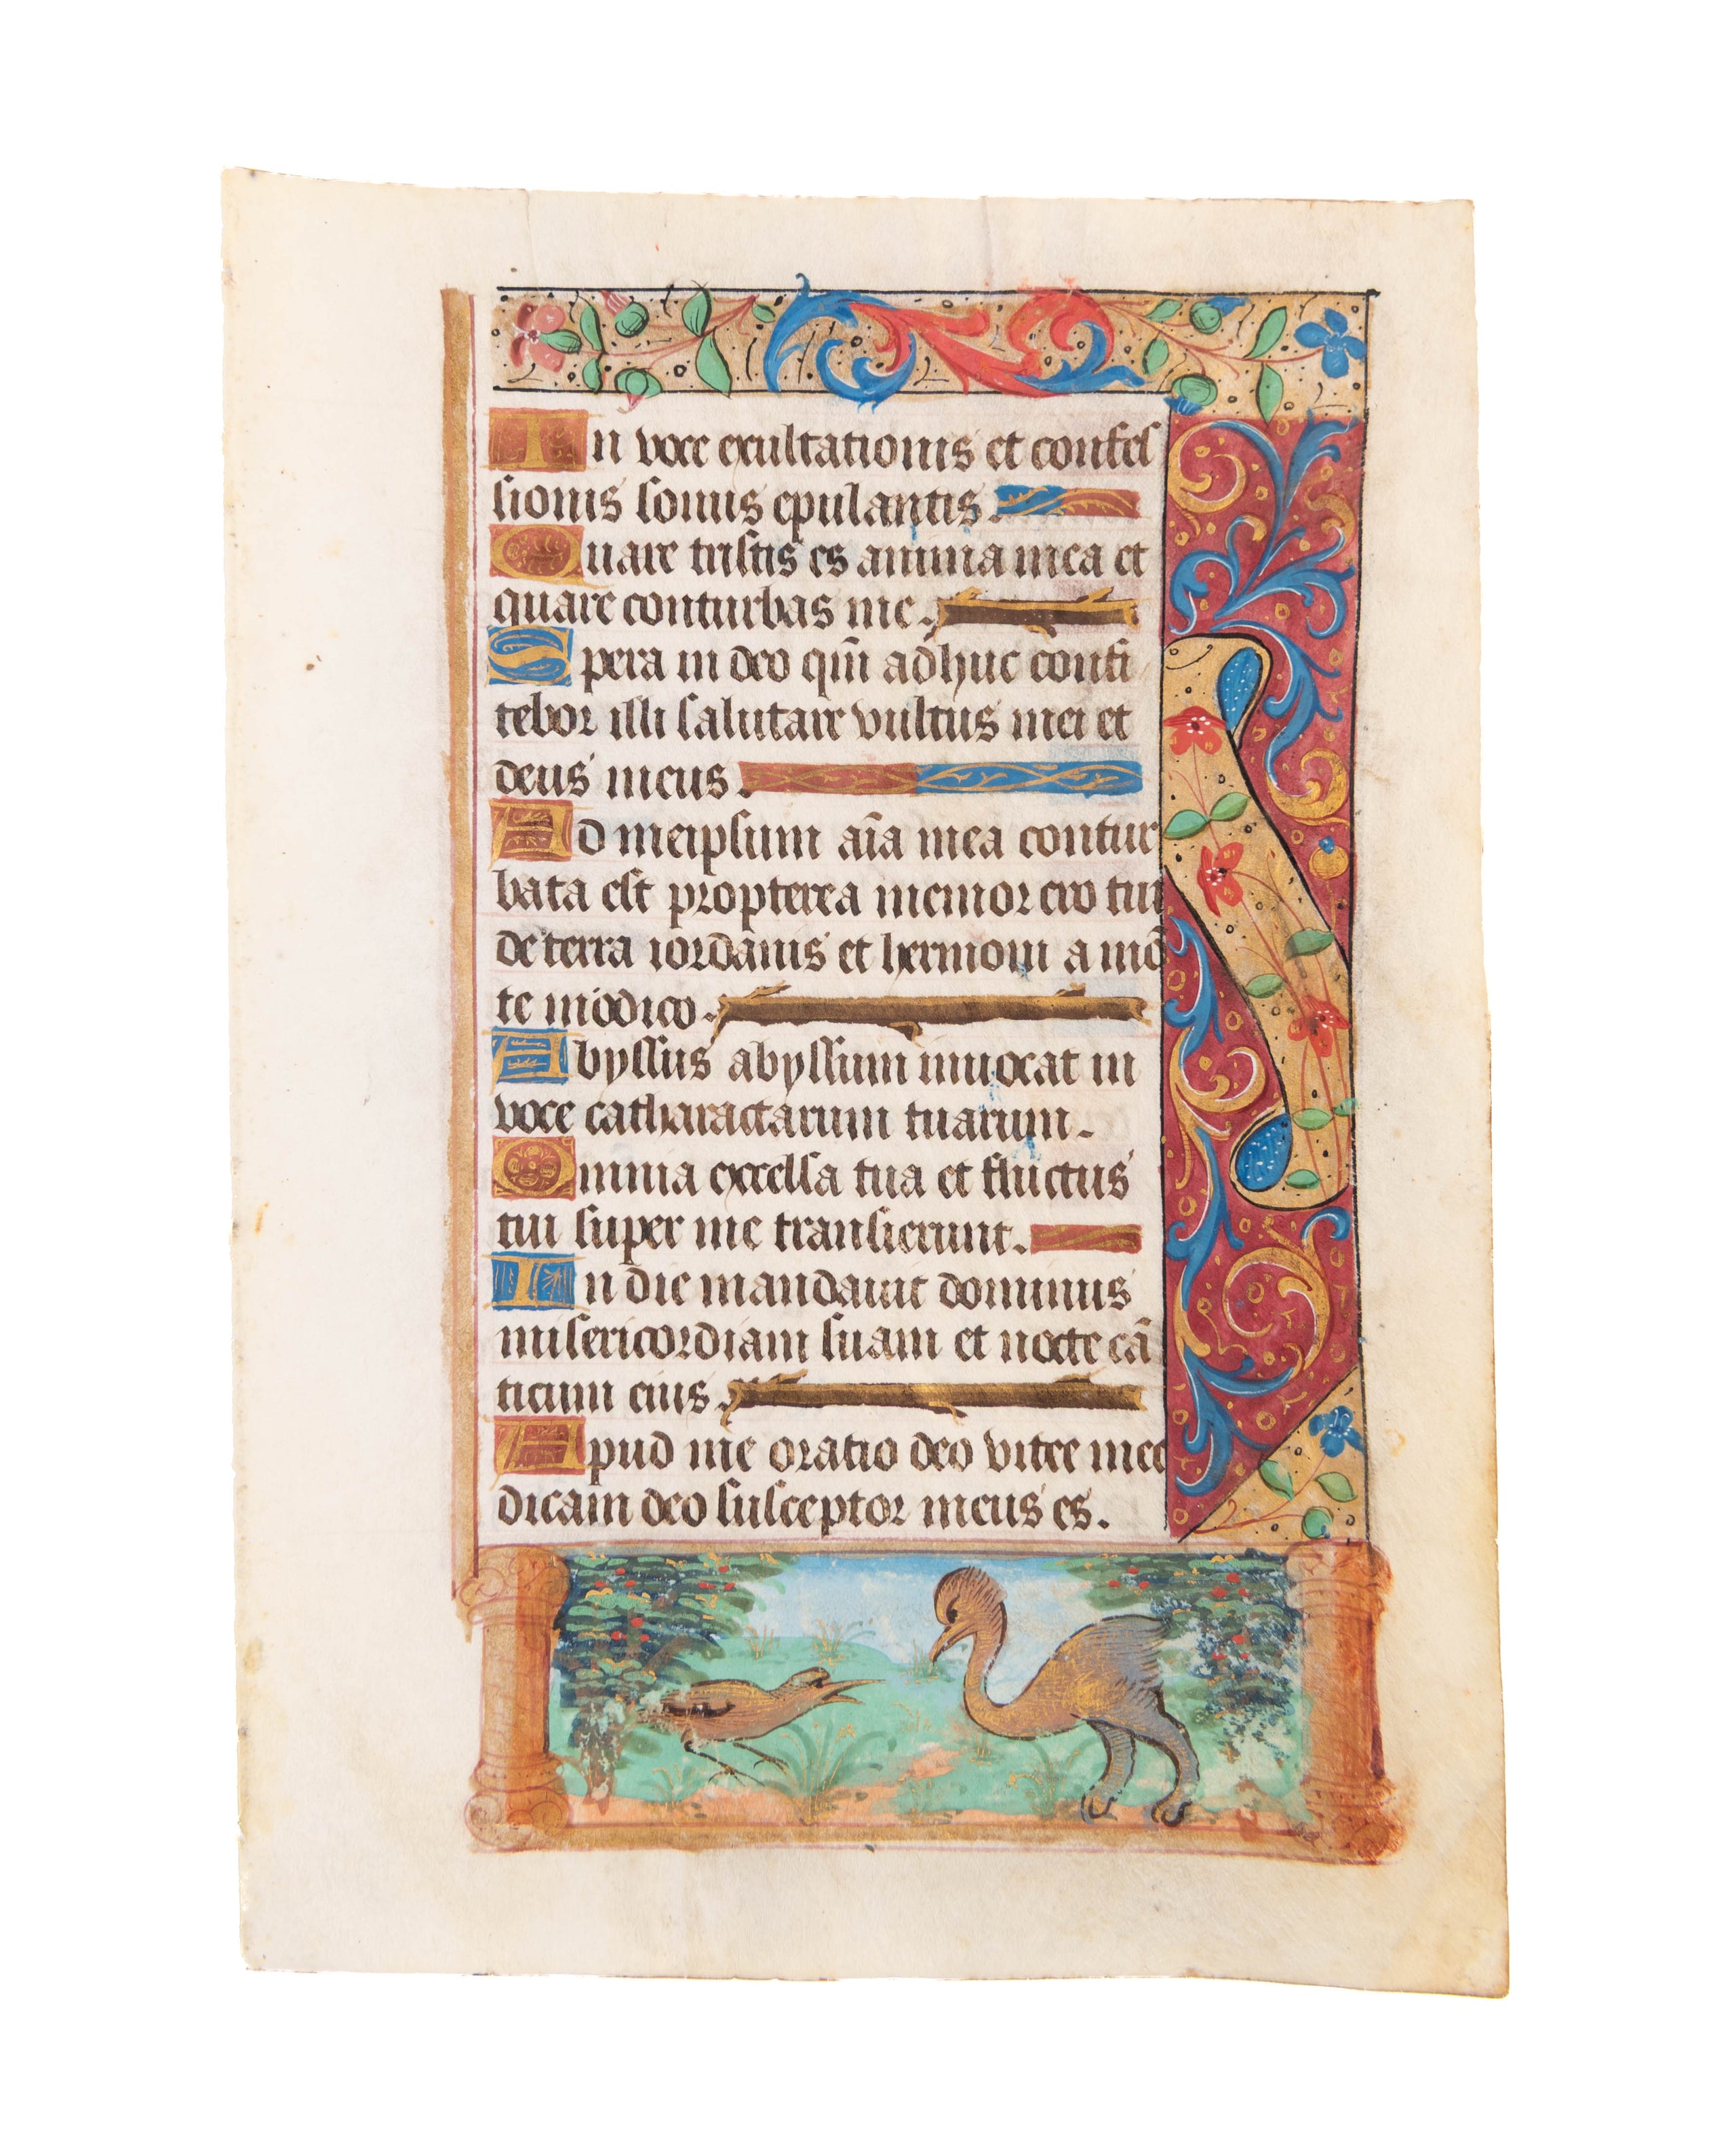 In voce exultationis et confes
sionis sonus epulantis.
Quare tristis es anima mea et
quare conturbas me.
Spera in deo qm̄ adhuc confi
tebor illi salutare vultus mei et
deus meus.
Ad meipsum aīa mea contur
bata est propterea memor ero tui
de terra iordanis et hermoni a mō
te modico.
Abyssus abyssum inuocat in
voce catharactarum tuarum.
Omnia excelsa tua et fluctus
tui super me transierunt.
In die mandauit dominus
misericordiam suam et nocte cā
ticum eius.
Apud me oratio deo vitee mee
dicam deo susceptor meus es.